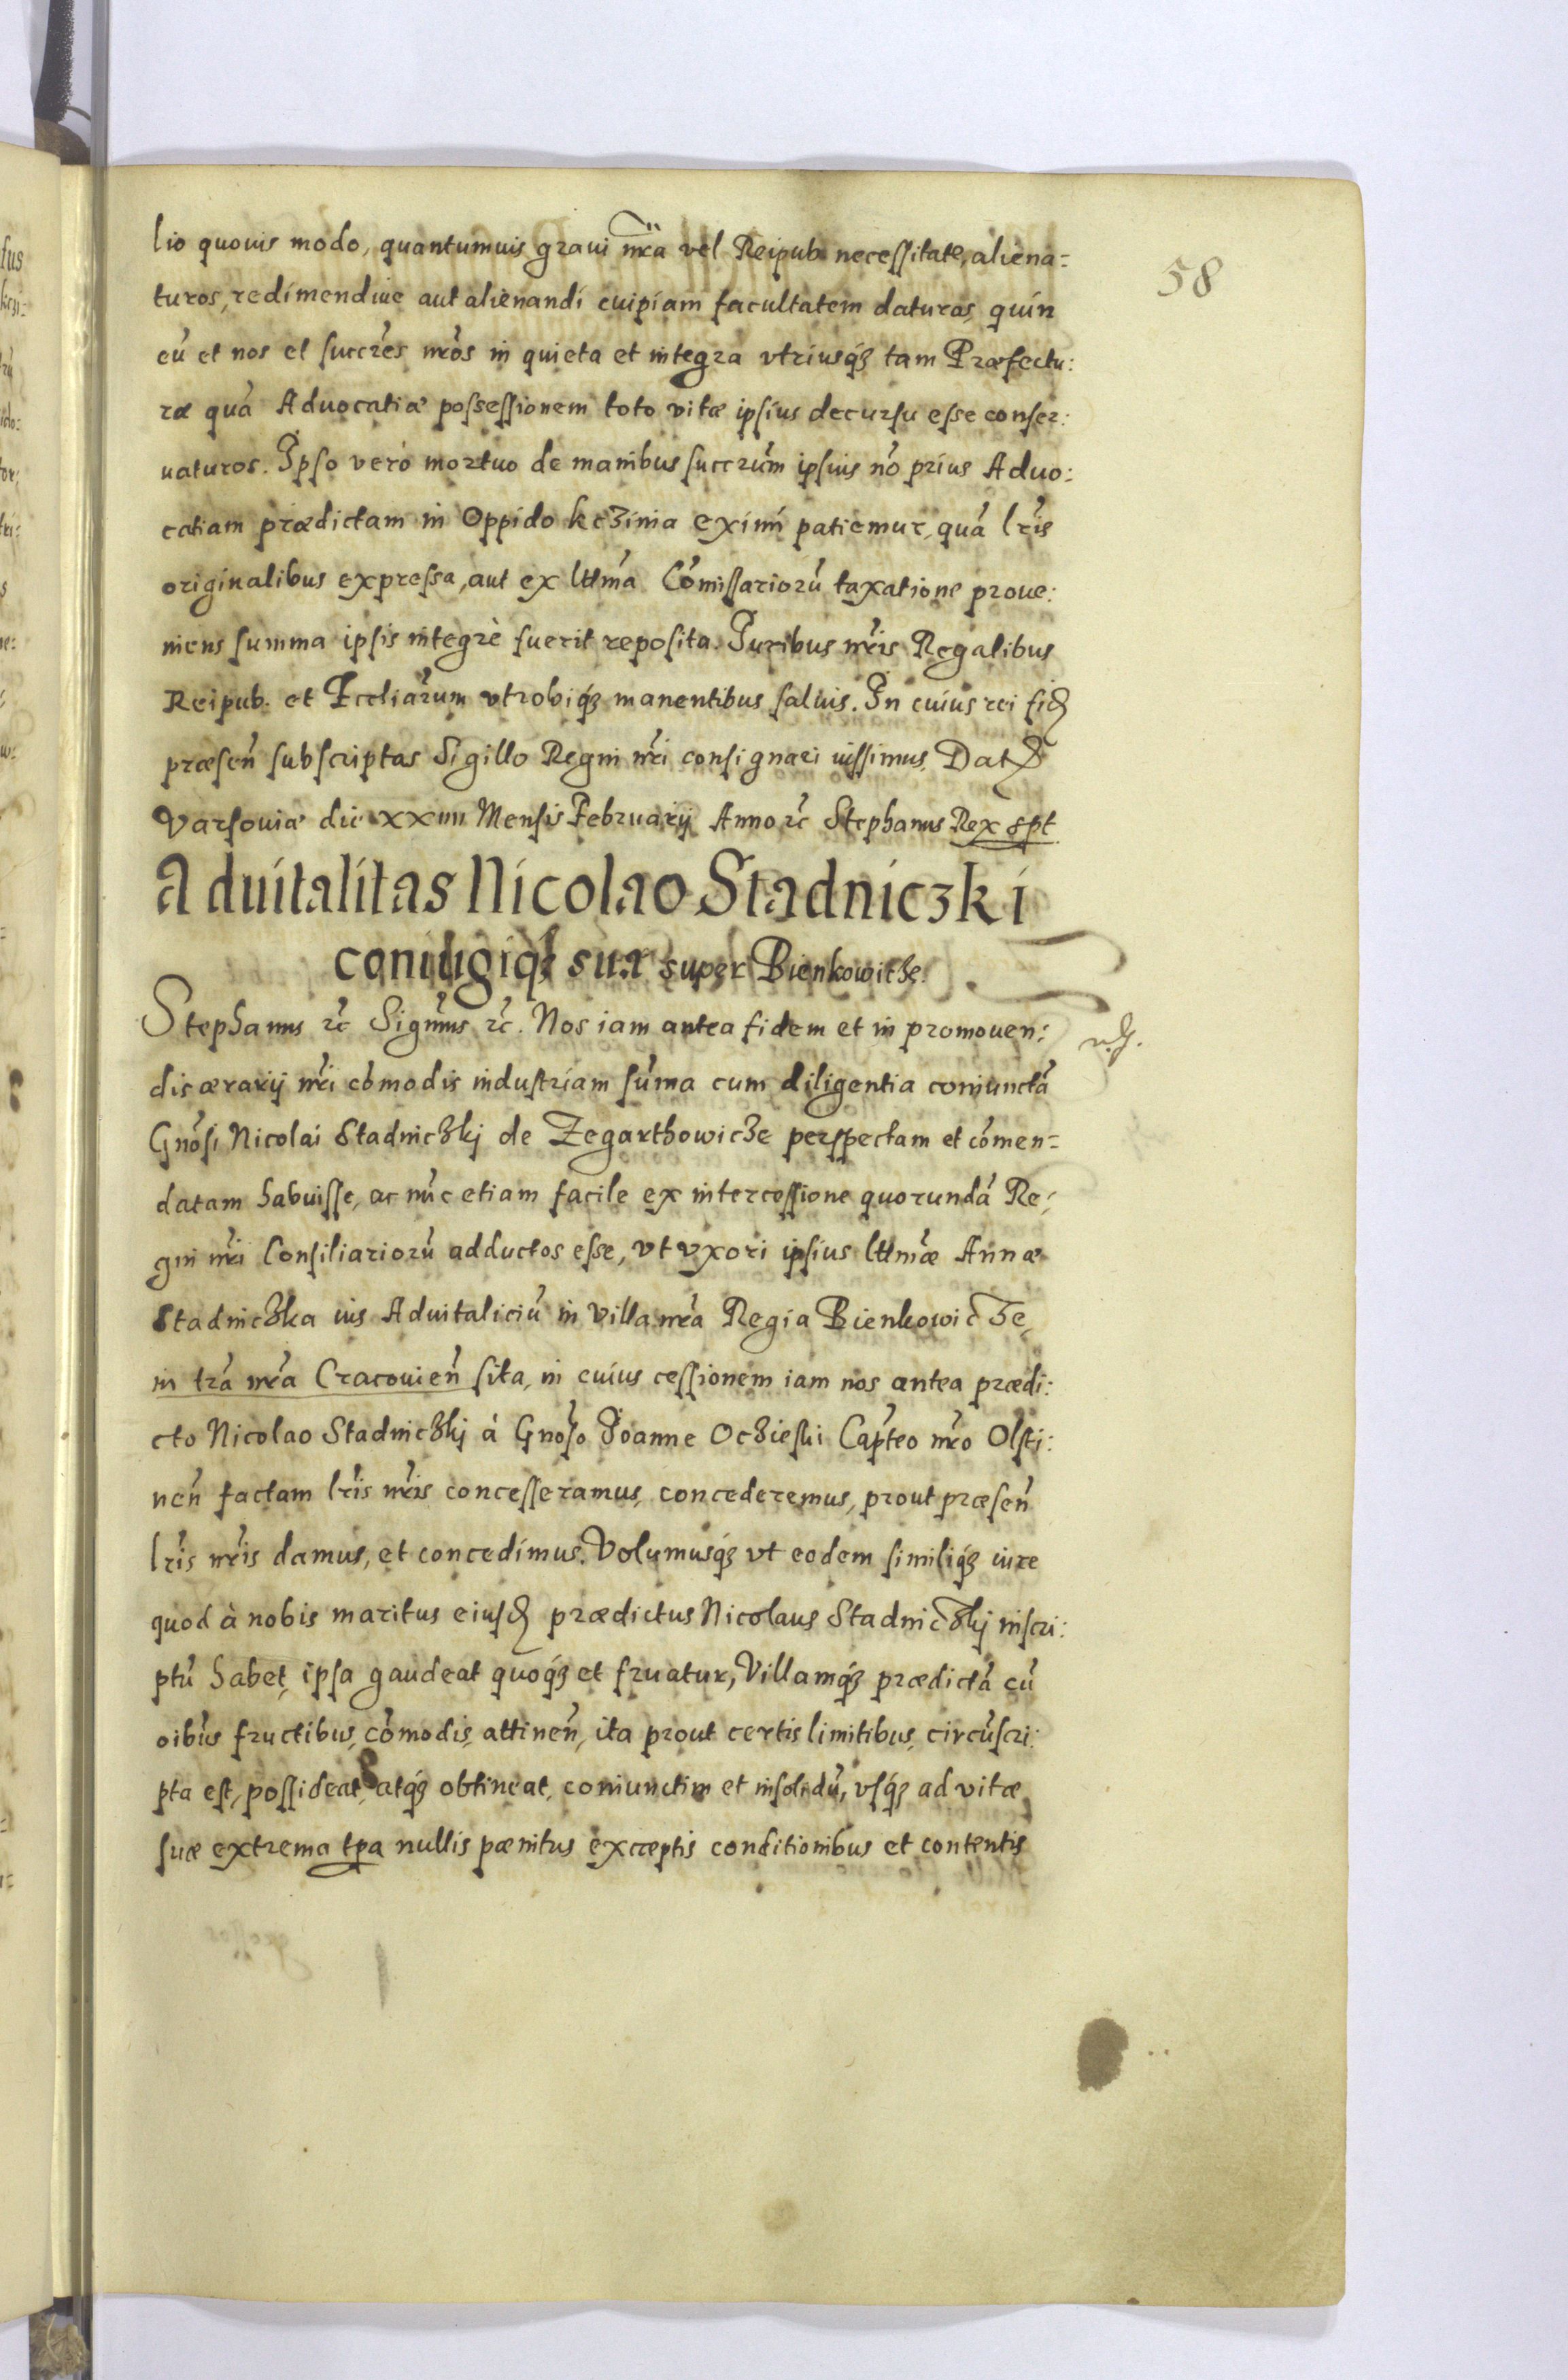 58
lio quouis modo, quantumuis graui nr̃a vel Reipub necessitate, aliena=
turos, redimendiue aut alienandi cuipiam facultatem daturos, quin
eũ et nos et succr̃es nr̃os in quieta et integra vtriusq́ꝫ tam Præfectu:
ræ quã Aduocatiæ possessionem toto vitæ ipsius decursu esse conser:
uaturos. Ipso verò mortuo de manibus succr̃um ipsius nõ prius Aduo:
catiam prædictam in Oppido kczinia eximi patiemur, quã lr̃is
originalibus expressa, aut ex lttm̃a Cõmissariorũ taxatione proue:
niens summa ipsis integrè fuerit reposita. Iuribus nr̃is Regalibus
Reipub. et Eccliar̃um vtrobiq́ꝫ manentibus saluis. In cuius rei fid
præseñ subscriptas Sigillo Regni nr̃i consignari iussimus, Dat
Varsouiæ die xxiiii Mensis Februarij Anno rc̃ Stephanus Rex spt
Aduitalitas Nicolao Stadniczki
coniugiq́ꝫ suæ super Bienkowicze.
Stephanus rc̃ Sigm̃us rc̃. Nos iam antea fidem et in promouen:
dis ærarij nr̃i cõmodis industriam sũma cum diligentia coniunctã
Gnõsi Nicolai Stadniczkj de Zegarthowicze perspectam et cõmen=
datam habuisse, ac nũc etiam facile ex intercessione quorundã Re:
gni nr̃i Consiliariorũ adductos esse, vt vxori ipsius lttm̃æ Annæ
Stadniczka ius Aduitaliciũ in Villa nr̃a Regia Bienkowicze,
in tr̃a nr̃a Cracouieñ sita, in cuius cessionem iam nos antea prædi:
cto Nicolao Stadniczkj á Gnõso Ioanne Oczieski Cap̃teo nr̃o Olsti:
neñ factam lr̃is nr̃is concesseramus, concederemus, prout præseñ
lr̃is nr̃is damus, et concedimus. Volumusq́ꝫ vt eodem similiq́ꝫ iure
quod à nobis maritus eiusd prædictus Nicolaus Stadniczkj inscri:
ptũ habet, ipsa gaudeat quoq́ꝫ et fruatur, Villamq́ꝫ prædictã cũ
oĩbus fructibus, cõmodis, attineñ, ita prout certis limitibus, circũscri:
pta est, possideat, atq́ꝫ obtineat, coniunctim et insolidũ, vsq́ꝫ ad vitæ
suæ extrema tp̃a nullis pænitus exceptis conditionibus et contentis